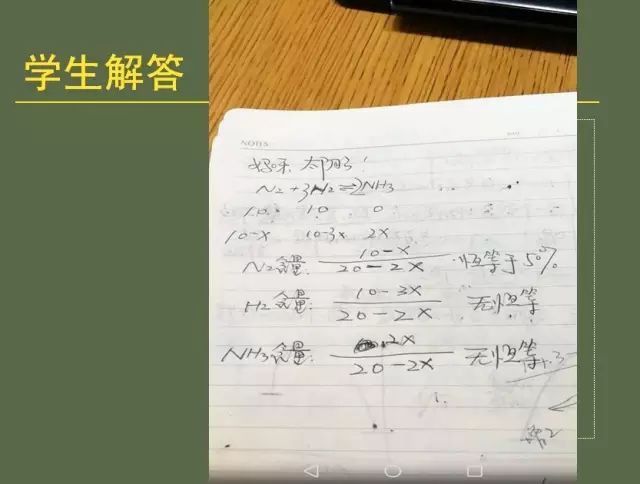 学生解答
NOTES
好呀,太阳了!
N₂ + 3H₂ ⇌ 2NH₃
10 10 0
10-x 10-3x 2x
N₂含量: 10-x / 20-2x 恒等于50%
H₂含量: 10-3x / 20-2x 无恒等
NH₃含量: 2x / 20-2x 无恒等